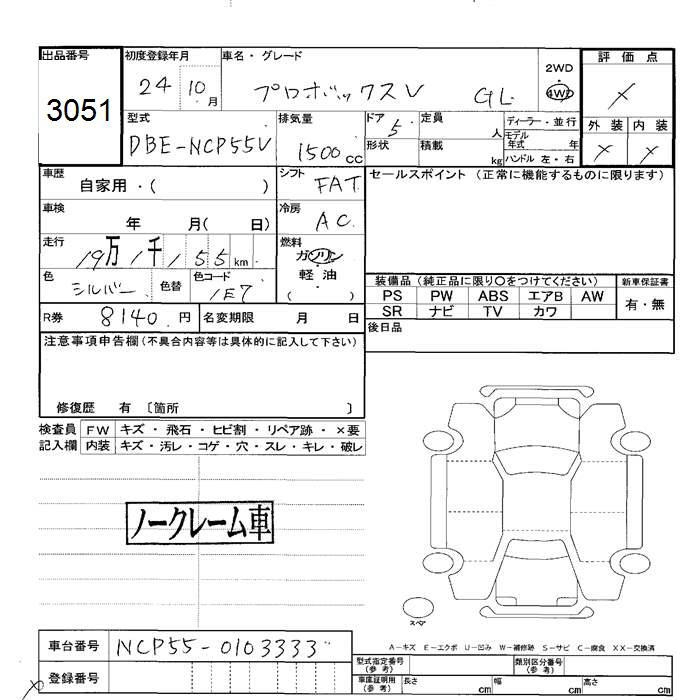 出品番号 初度登録年月 車名・グレード 2WD 評価点
3051 24 10 月 プロボックスV GL 4WD ×
型式 排気量 ドア 定員 ディーラー・並行 外装 内装
DBE-NCP55V 1500 cc 5 人 モデル年式 年 × ×
形状 積載 kg ハンドル 左・右
車歴 シフト セールスポイント (正常に機能するものに限ります)
自家用・( ) FAT
車検 年 月( 日) 冷房 AC
走行 19万1千155 km 燃料 ガソリン
軽油
( )
色 シルバー 色替 色コード 1E7
装備品 (純正品に限り○をつけてください) 新車保証書
PS PW ABS エアB AW 有・無
SR ナビ TV カワ
R券 8140 円 名変期限 月 日
後日品
注意事項申告欄(不具合内容等は具体的に記入して下さい)
修復歴 有 〔箇所 〕
検査員 FW キズ・飛石・ヒビ割・リペア跡・×要
記入欄 内装 キズ・汚レ・コゲ・穴・スレ・キレ・破レ
ノークレーム車
スペア
車台番号 NCP55-0103333
A-キズ E-エクボ U-凹み W-補修跡 S-サビ C-腐食 XX-交換済
登録番号
型式指定番号(参考) 類別区分番号(参考)
車庫証明用(参考) 長さ cm 幅 cm 高さ cm